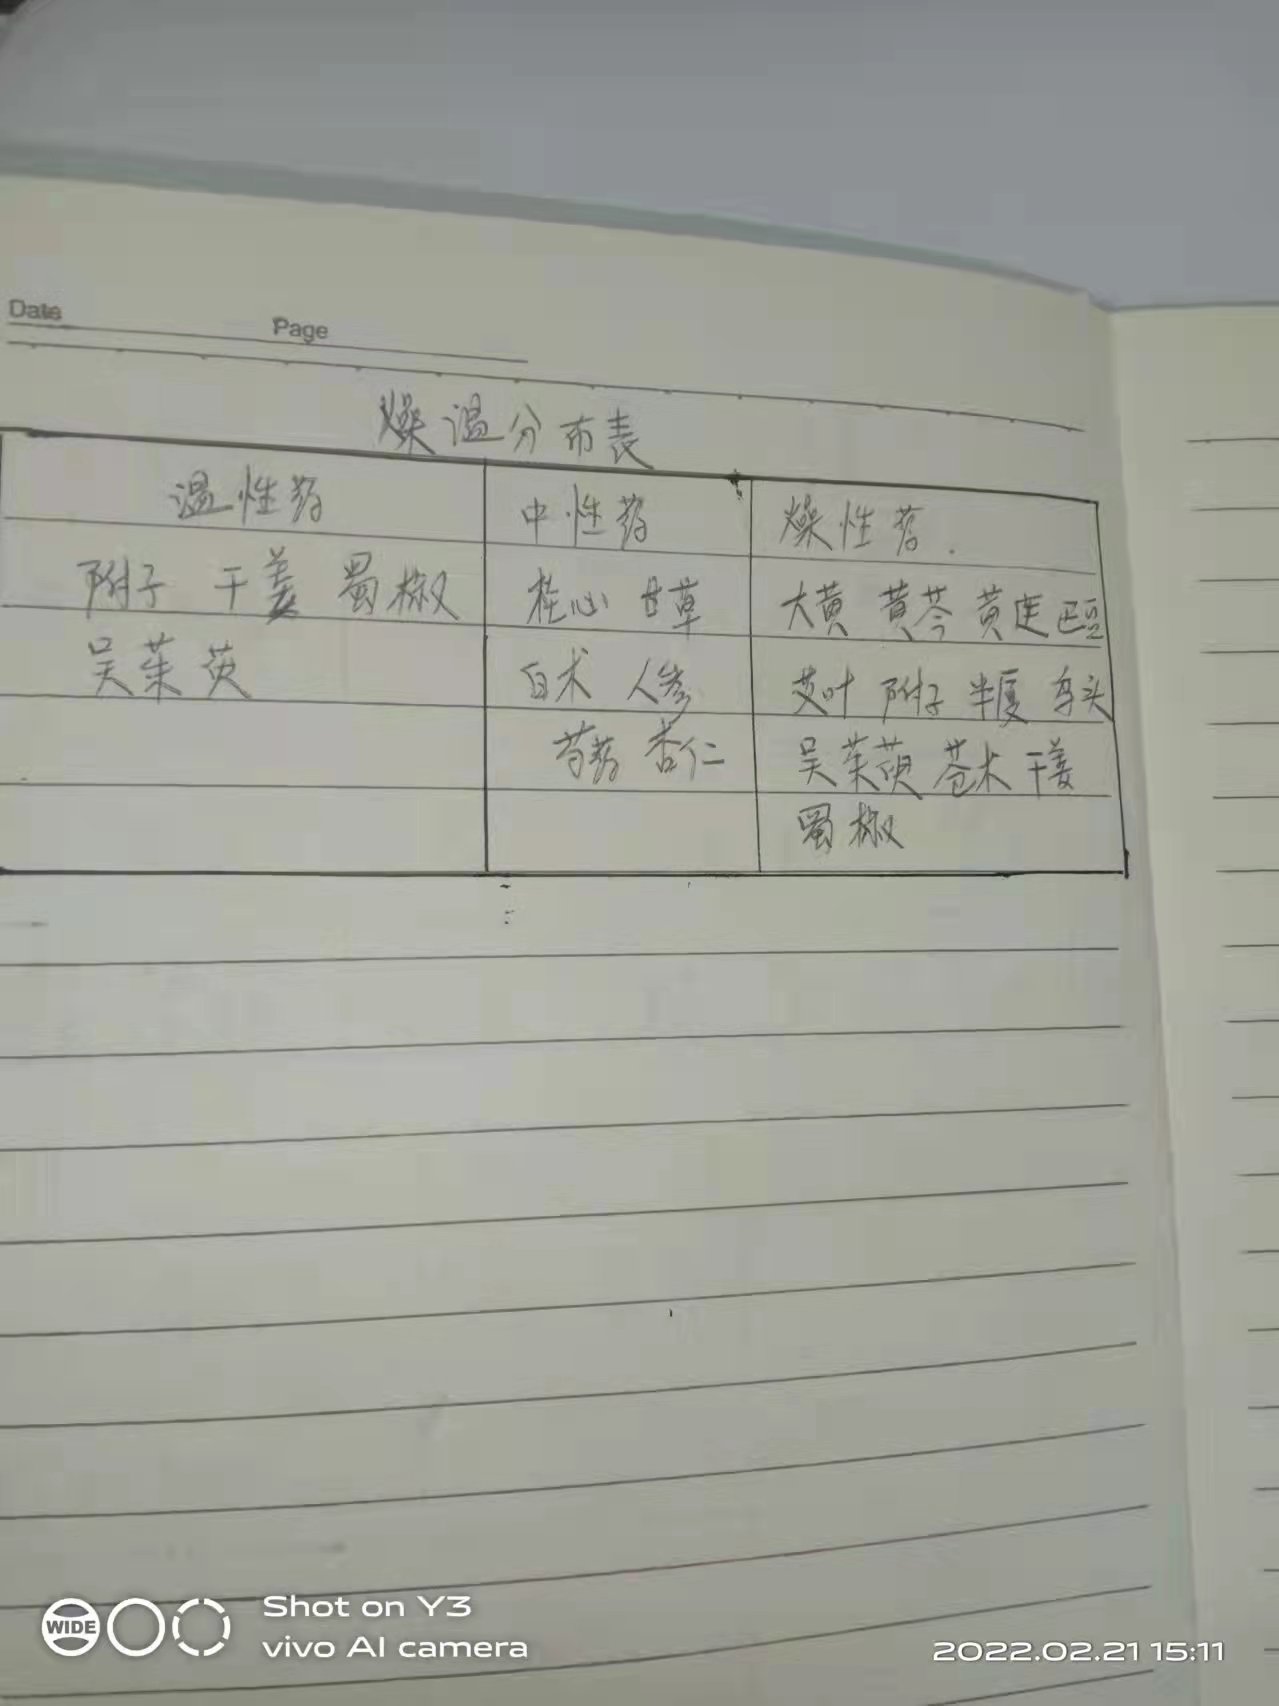 Date
Page
燥温分布表
温性药 中性药 燥性药.
附子 干姜 蜀椒 桂心 甘草 大黄 黄芩 黄连 巴豆
吴茱萸 白术 人参 艾叶 附子 半夏 乌头
芍药 杏仁 吴茱萸 苍术 干姜
蜀椒
WIDE
Shot on Y3
vivo AI camera
2022.02.21 15:11